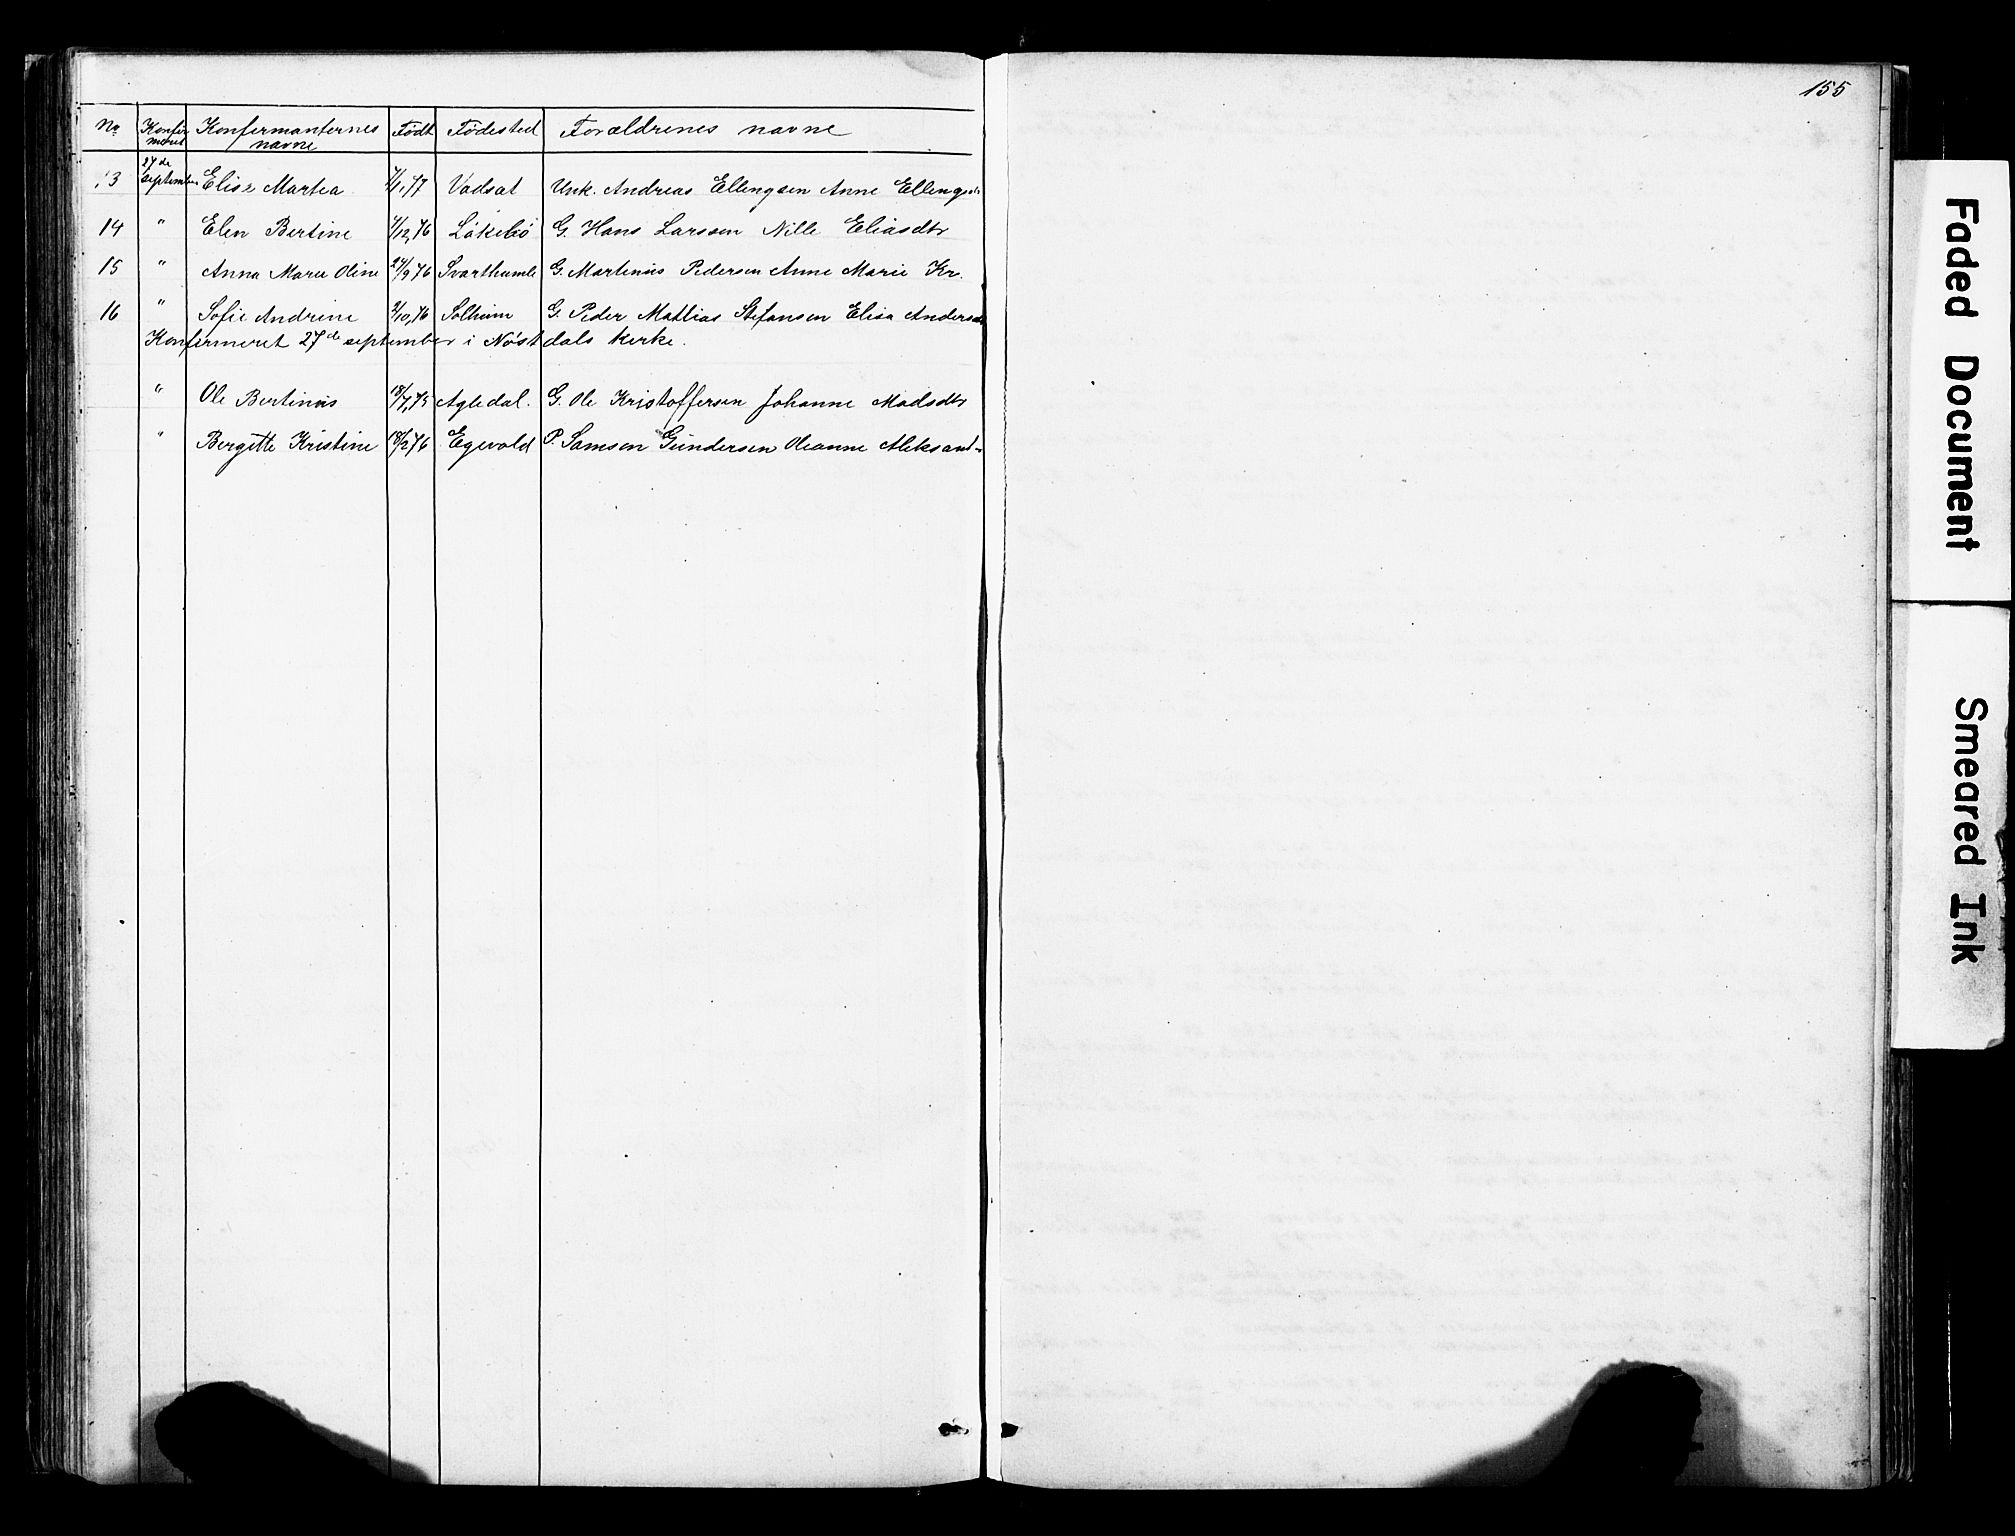 155
No Konfirmeret Konfirmanternes navne Født Fødested Forældrenes navne
13 27de september Elise Martea 7/1,77 Vadsæt Unk. Andreas Ellingsen Anne Ellingsdr
14 " Elen Bertine 4/12,76 Løkebø G. Hans Larssen Nille Eliasdtr
15 " Anna Marie Oline 24/9 76 Svarthumle G. Martinus Pedersen Anne Marie Kr.
16 " Sofie Andrine 9/10,76 Solheim G. Peder Mathias Stefansen Elisa Andersdr
Konfirmeret 27de september i Nøstdals kirke.
" Ole Bertinus 18/7,75 Agledal. G. Ole Kristoffersen Johanne Madsdtr
" Bergitte Kristine 18/2 76 Egevold P. Samson Gundersen Oleanne Aleksand-
Faded Document
Smeared Ink